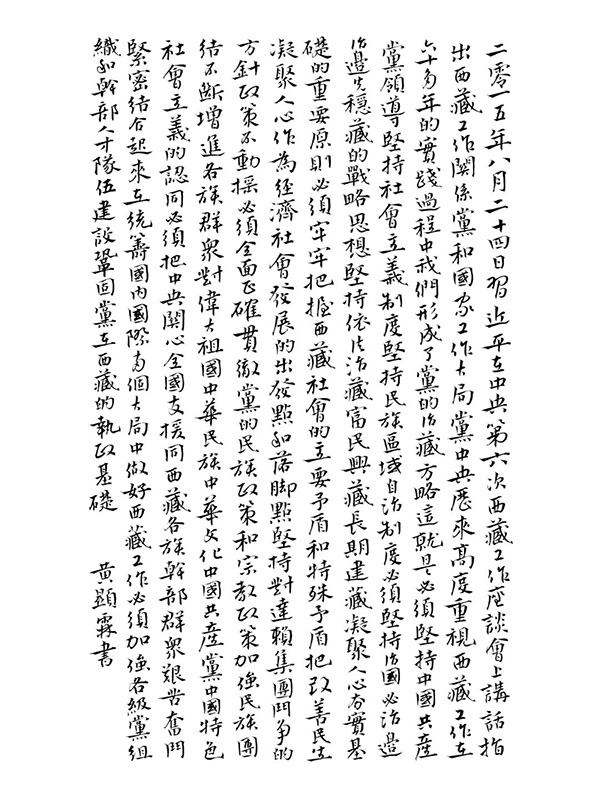 二零一五年八月二十四日習近平在中央第六次西藏工作座談會上講話指
出西藏工作關係黨和國家工作大局黨中央歷來高度重視西藏工作在
六十多年的實踐過程中我們形成了黨的治藏方略這就是必須堅持中國共產
黨領導堅持社會主義制度堅持民族區域自治制度必須堅持治國必治邊
治邊先穩藏的戰略思想堅持依法治藏富民興藏長期建藏凝聚人心夯實基
礎的重要原則必須牢牢把握西藏社會的主要矛盾和特殊矛盾把改善民生
凝聚人心作為經濟社會發展的出發點和落腳點堅持對達賴集團鬥爭的
方針政策不動搖必須全面正確貫徹黨的民族政策和宗教政策加強民族團
結不斷增進各族群衆對偉大祖國中華民族中華文化中國共產黨中國特色
社會主義的認同必須把中央關心全國支援同西藏各族幹部群衆艱苦奮鬥
緊密結合起來在統籌國內國際兩個大局中做好西藏工作必須加強各級黨組
織和幹部人才隊伍建設鞏固黨在西藏的執政基礎 黃顯霖書